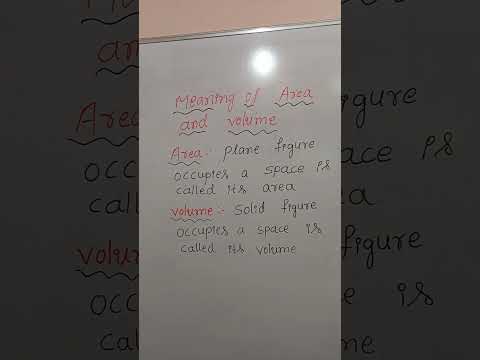 Meaning of Area
and volume
Area:- plane figure
occupies a space is
called its area
volume:- Solid figure
occupies a space is
called its volume